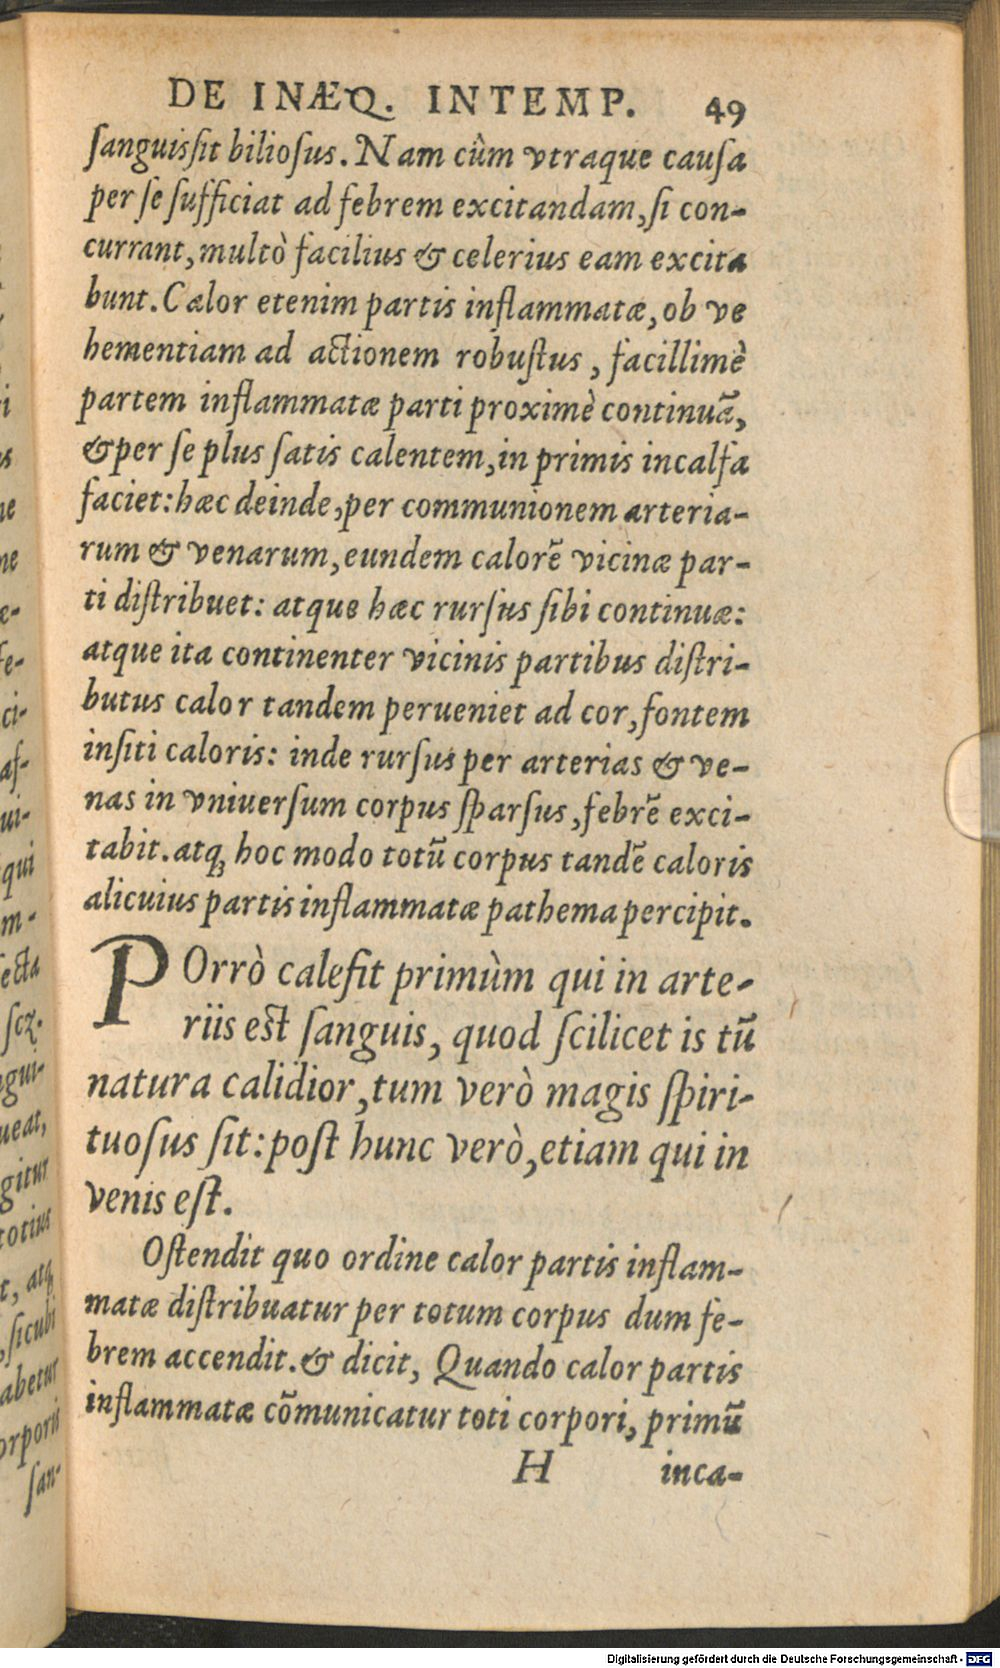 DE INÆQ. INTEMP. 49
ſanguis ſit bilioſus. Nam cûm vtraque cauſa
per ſe ſufficiat ad febrem excitandam, ſi con-
currant, multò facilius & celerius eam excita
bunt. Calor etenim partis inflammatæ, ob ve
hementiam ad actionem robuſtus, facillimè
partem inflammatæ parti proximè continuā,
& per ſe plus ſatis calentem, in primis incalfa
faciet: hæc deinde, per communionem arteria-
rum & venarum, eundem calorē vicinæ par-
ti diſtribuet: atque hæc rurſus ſibi continuæ:
atque ita continenter vicinis partibus diſtri-
butus calor tandem perueniet ad cor, fontem
inſiti caloris: inde rurſus per arterias & ve-
nas in vniuerſum corpus ſparſus, febrē exci-
tabit. atq; hoc modo totū corpus tandē caloris
alicuius partis inflammatæ pathema percipit.
POrrò calefit primùm qui in arte-
riis eſt ſanguis, quod ſcilicet is tū
natura calidior, tum verò magis ſpiri-
tuoſus ſit: poſt hunc verò, etiam qui in
venis eſt.
Oſtendit quo ordine calor partis inflam-
matæ diſtribuatur per totum corpus dum fe-
brem accendit. & dicit, Quando calor partis
inflammatæ cōmunicatur toti corpori, primū
H inca-
i
s
ne
ne
e-
fe-
ci-
aſ-
ui-
qui
m-
ecta
ſcz.
gui-
ueat,
gitur
totius
t, atq;
, ſicubi
abetur
orporis
ſan-
Digitalisierung gefördert durch die Deutsche Forschungsgemeinschaft - DFG